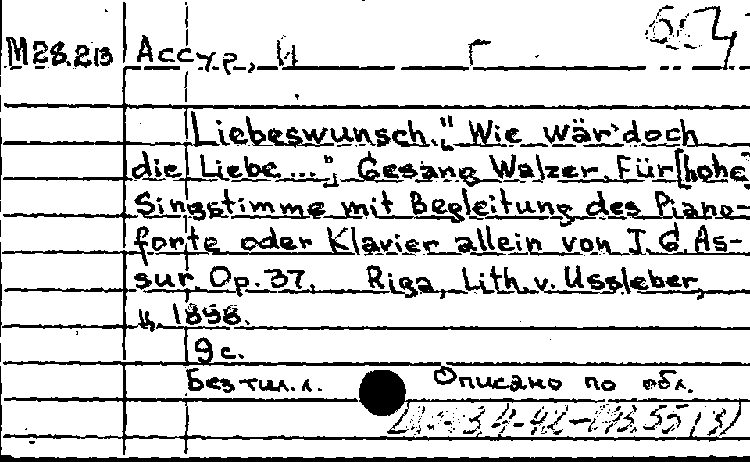 M28.213 Ассур, И Г
Liebeswunsch. „Wie wär' doch
die Liebe...“; Gesang Walzer. Für [hohe]
Singstimme mit Begleitung des Piano-
forte oder Klavier allein von J. G. As-
sur. Op. 37. Riga, Lith. v. Ussleber,
ц. 1898.
9 с.
Без тит. л. Описано по обл.